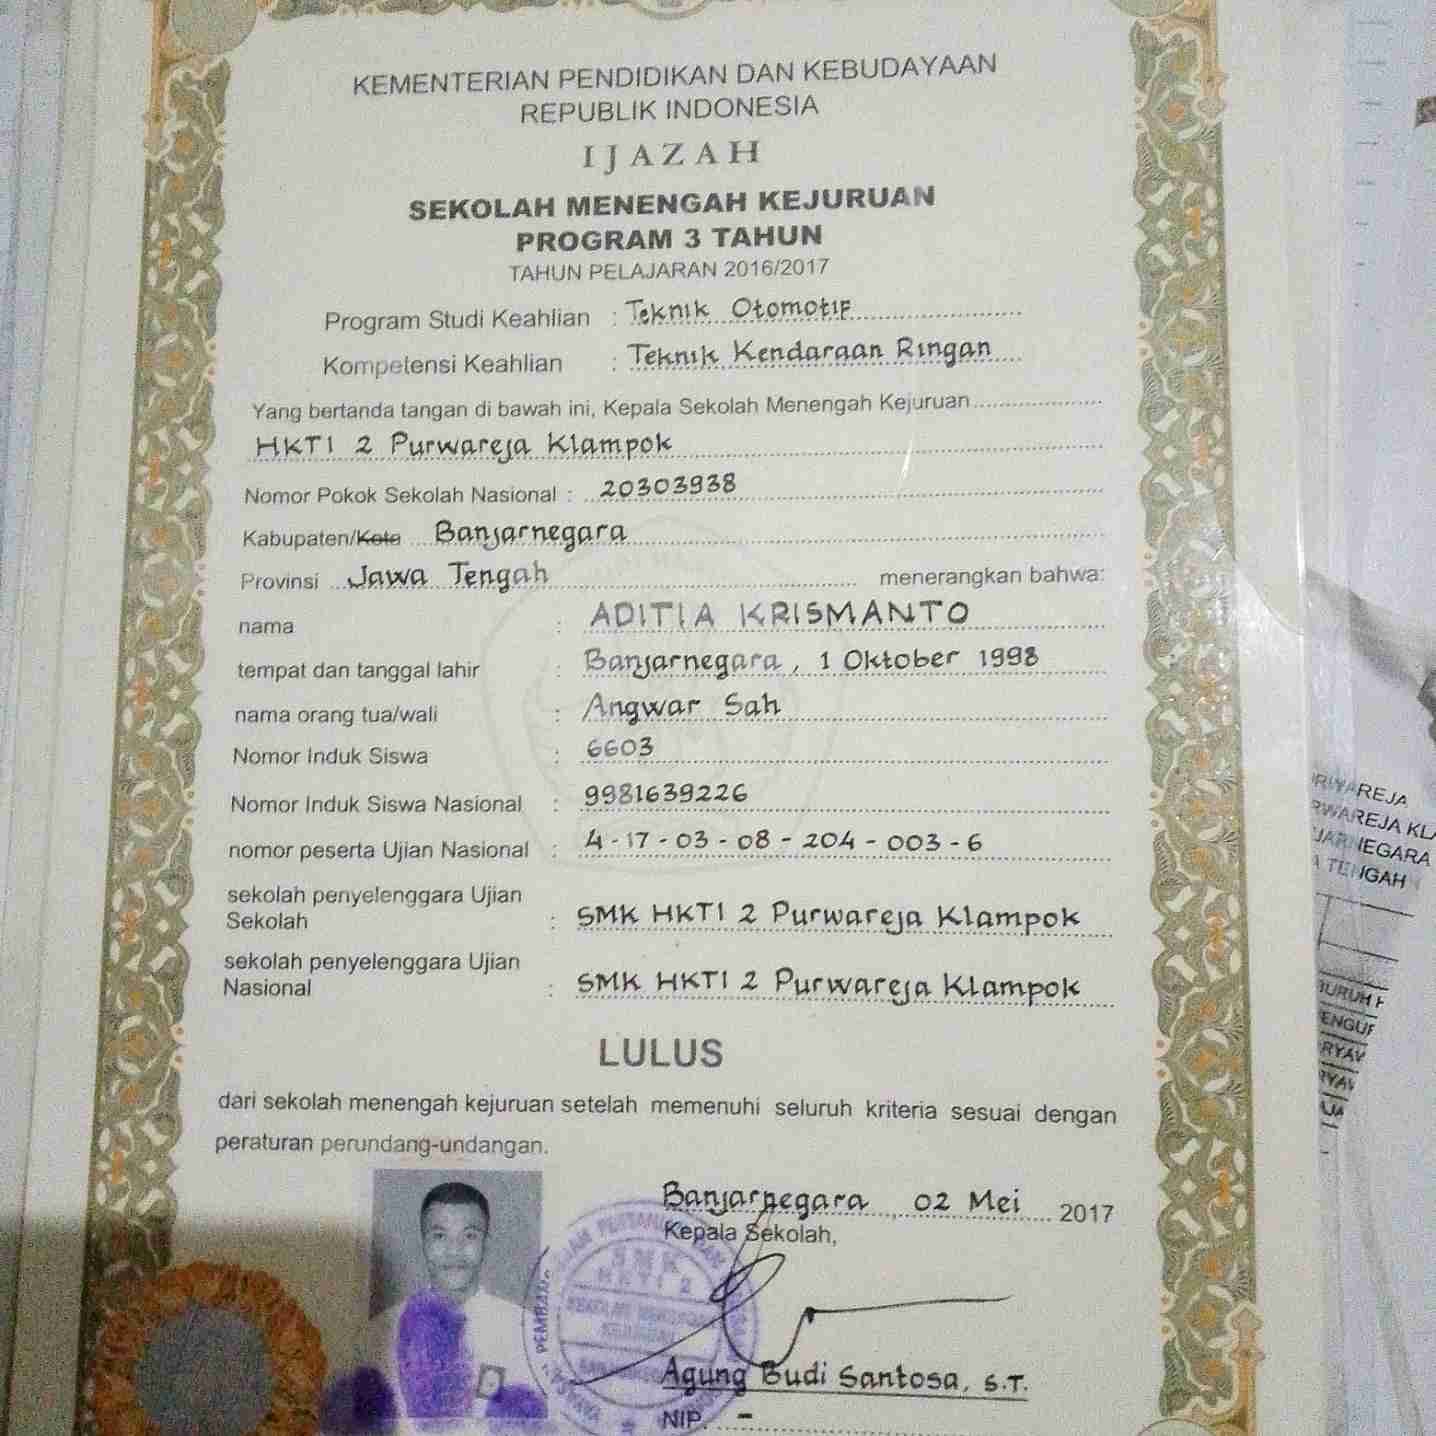 KEMENTERIAN PENDIDIKAN DAN KEBUDAYAAN
REPUBLIK INDONESIA
IJAZAH
SEKOLAH MENENGAH KEJURUAN
PROGRAM 3 TAHUN
TAHUN PELAJARAN 2016/2017
Program Studi Keahlian : Teknik Otomotif
Kompetensi Keahlian : Teknik Kendaraan Ringan
Yang bertanda tangan di bawah ini, Kepala Sekolah Menengah Kejuruan
HKTI 2 Purwareja Klampok
Nomor Pokok Sekolah Nasional : 20303938
Kabupaten/Kota Banjarnegara
Provinsi Jawa Tengah menerangkan bahwa:
nama : ADITIA KRISMANTO
tempat dan tanggal lahir : Banjarnegara, 1 Oktober 1998
nama orang tua/wali : Angwar Sah
Nomor Induk Siswa : 6603
Nomor Induk Siswa Nasional : 9981639226
nomor peserta Ujian Nasional : 4-17-03-08-204-003-6
sekolah penyelenggara Ujian
Sekolah : SMK HKTI 2 Purwareja Klampok
sekolah penyelenggara Ujian
Nasional : SMK HKTI 2 Purwareja Klampok
LULUS
dari sekolah menengah kejuruan setelah memenuhi seluruh kriteria sesuai dengan
peraturan perundang-undangan.
Banjarnegara, 02 Mei 2017
Kepala Sekolah,
SMK
HKTI 2
Agung Budi Santosa, S.T.
NIP. -
RWAREJA KLA
JARNEGARA
TENGAH